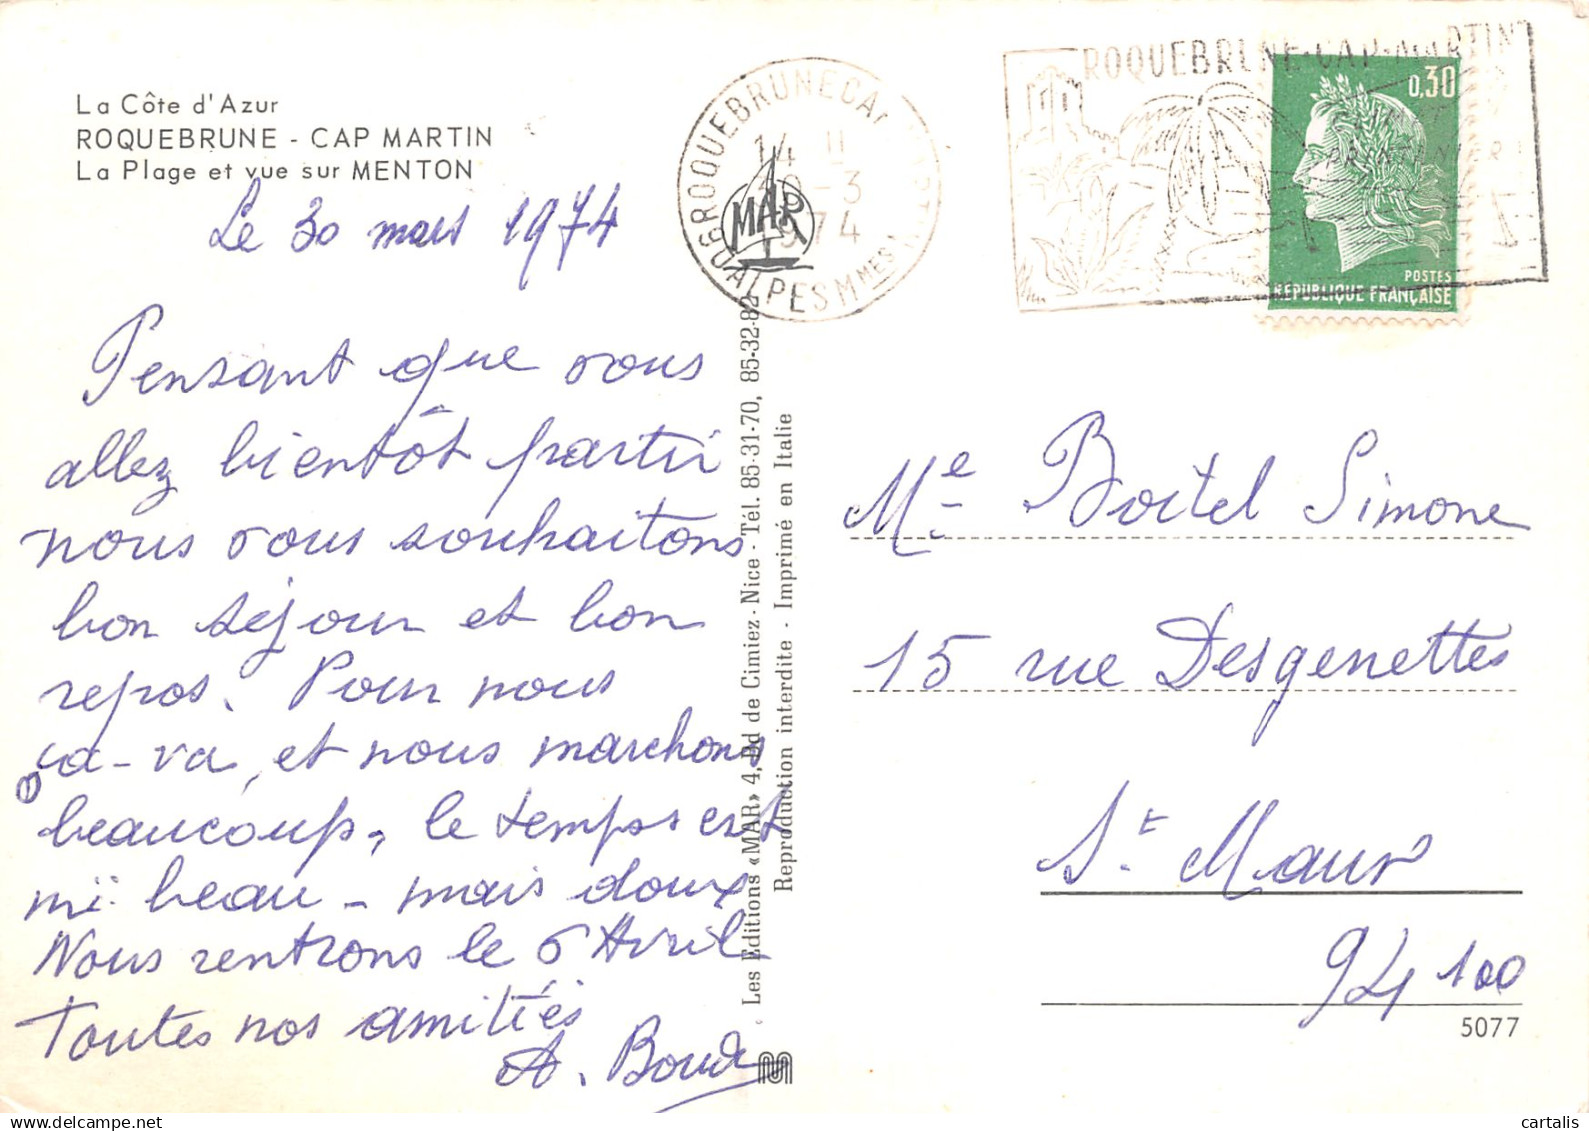 La Côte d'Azur
ROQUEBRUNE - CAP MARTIN
La Plage et vue sur MENTON
Le 30 mars 1974
Pensant que vous
allez bientôt partir
nous vous souhaitons
bon séjour et bon
repos. Pour nous
ça-va, et nous marchons
beaucoup, le temps est
mi-beau - mais doux
Nous rentrons le 6 Avril
Toutes nos amitiés
A.
06 ROQUEBRUNE CAP MARTIN
14 H
30-3
1974
ALPES MMES
MAR
ROQUEBRUNE-CAP-MARTIN
PRINTANIER
0,30
POSTES
RÉPUBLIQUE FRANÇAISE
Les Editions «MAR» 4, Bd de Cimiez - Nice - Tél. 85-31-70, 85-32-82
Reproduction interdite - Imprimé en Italie
Me Boitel Simone
15 rue Desgenettes
St Maur
94 100
5077
cartalis
delcampe.net